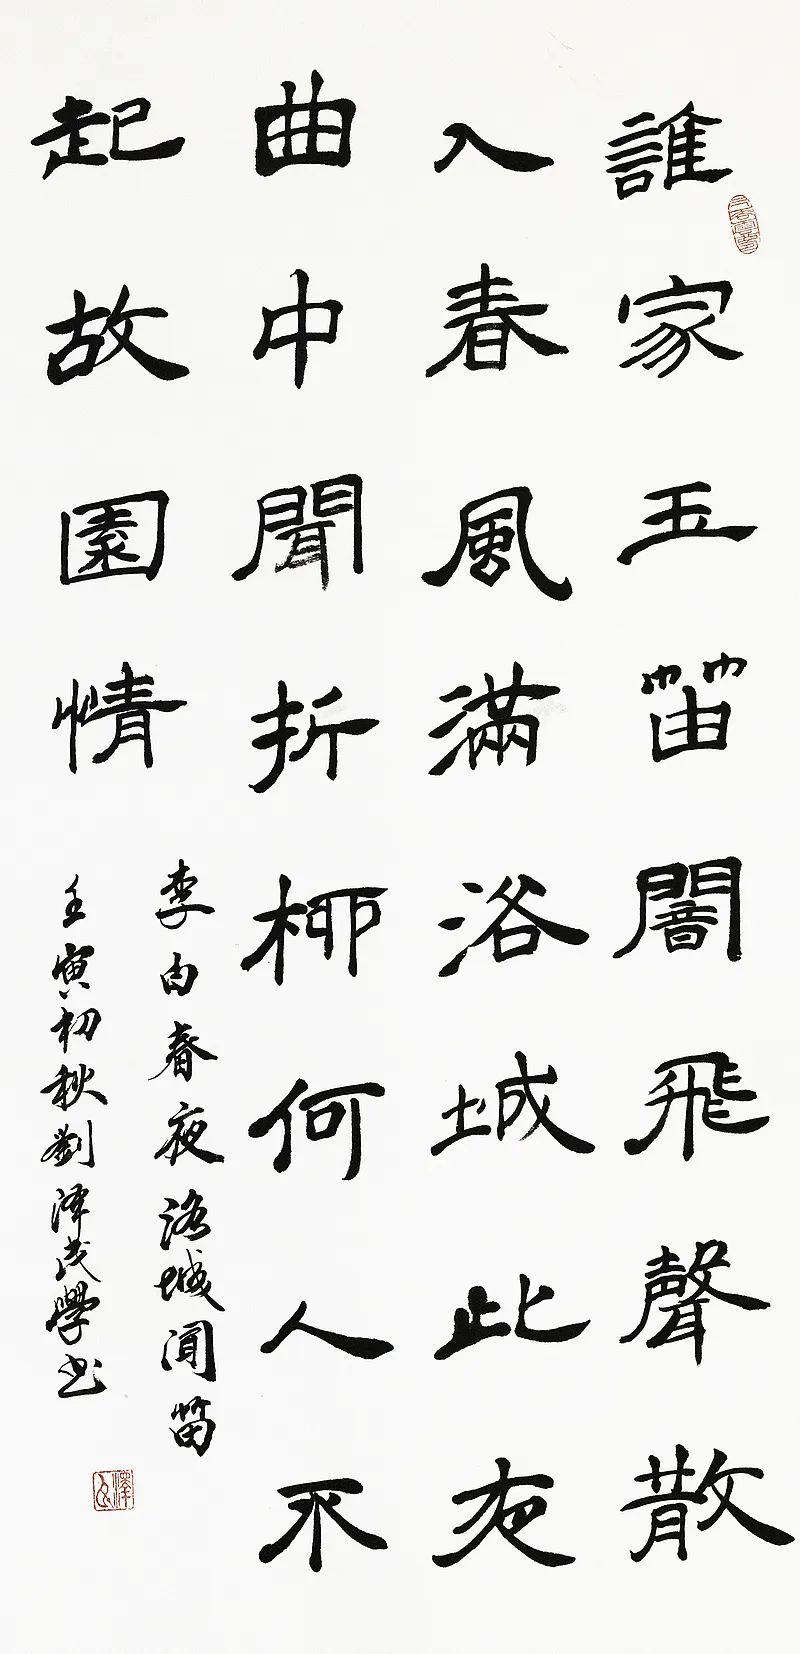 誰家玉笛闇飛聲散
入春風滿洛城此夜
曲中聞折柳何人不
起故園情
李白春夜洛城聞笛
壬寅初秋劉澤民學書
澤民